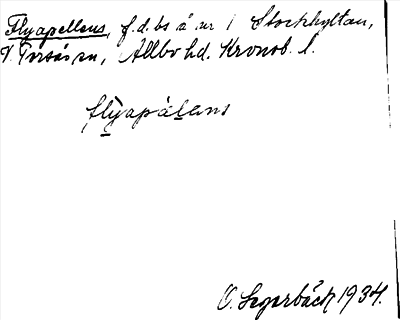 Flyapellens, f.d. bs å nr 1 Stockhyltan,
V. Torsås sn, Allbo hd. Kronob. l.
flyapälens
O. Segerbäck 1934.